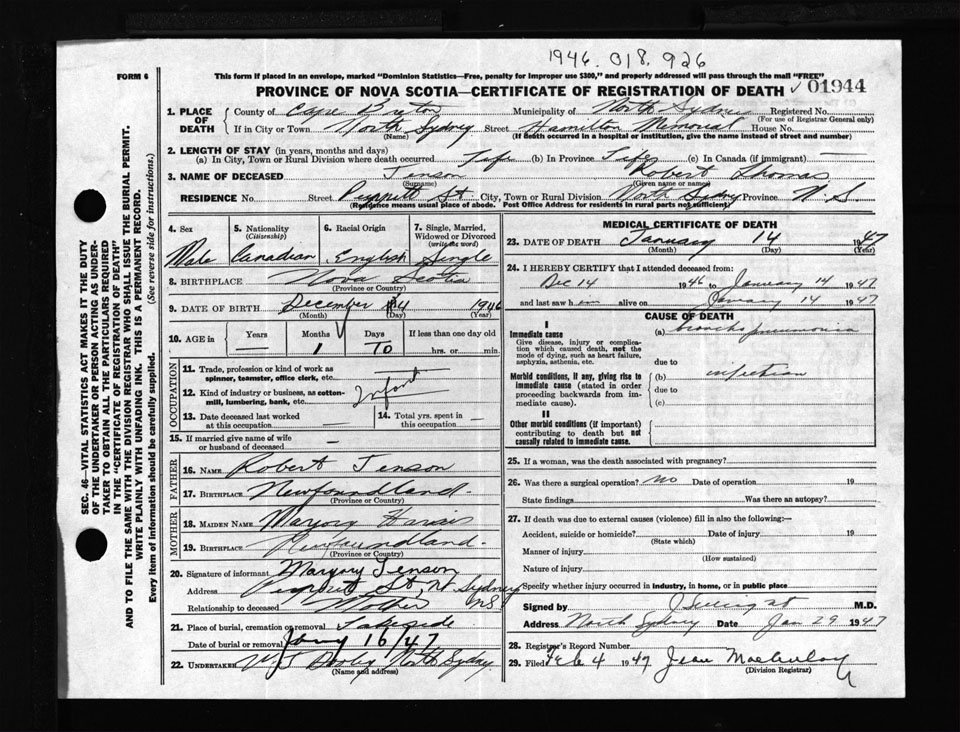 1946. 018. 926
FORM 6
This form if placed in an envelope, marked "Dominion Statistics—Free, penalty for improper use $300," and properly addressed will pass through the mail "FREE"
PROVINCE OF NOVA SCOTIA—CERTIFICATE OF REGISTRATION OF DEATH 01944
1. PLACE OF DEATH County of Cape Breton Municipality of North Sydney Registered No.
(For use of Registrar General only)
If in City or Town North Sydney Street Hamilton Memorial House No.
(Name) (If death occurred in a hospital or institution, give the name instead of street and number)
2. LENGTH OF STAY (in years, months and days)
(a) In City, Town or Rural Division where death occurred Life (b) In Province Life (c) In Canada (if immigrant) —
3. NAME OF DECEASED Jenson Robert Thomas
(Surname) (Given name or names)
RESIDENCE No. Street Peppitt St City, Town or Rural Division North Sydney Province N. S
(Residence means usual place of abode. Post Office Address for residents in rural parts not sufficient)
4. Sex 5. Nationality (Citizenship) 6. Racial Origin 7. Single, Married, Widowed or Divorced (write the word)
Male Canadian English Single
8. BIRTHPLACE Nova Scotia
(Province or Country)
9. DATE OF BIRTH December 4 1946
(Month) (Day) (Year)
10. AGE in Years Months Days If less than one day old
— 1 10 hrs. or min.
OCCUPATION
11. Trade, profession or kind of work as spinner, teamster, office clerk, etc.
12. Kind of industry or business, as cotton-mill, lumbering, bank, etc. Infant
13. Date deceased last worked at this occupation — 14. Total yrs. spent in this occupation —
15. If married give name of wife or husband of deceased —
FATHER
16. NAME Robert Jenson
17. BIRTHPLACE Newfoundland
(Province or Country)
MOTHER
18. MAIDEN NAME Marjory Harris
19. BIRTHPLACE Newfoundland
(Province or Country)
20. Signature of informant Marjory Jenson
Address St, N Sydney NS
Relationship to deceased Mother
21. Place of burial, cremation or removal Lakeside
Date of burial or removal Jany 16/47
22. UNDERTAKER North Sydney
(Name and address)
MEDICAL CERTIFICATE OF DEATH
23. DATE OF DEATH January 14 1947
(Month) (Day) (Year)
24. I HEREBY CERTIFY that I attended deceased from:
Dec 14 1946 to January 14 1947
and last saw h im alive on January 14 1947
CAUSE OF DEATH
I
Immediate cause (a) broncho pneumonia
Give disease, injury or complication which caused death, not the mode of dying, such as heart failure, asphyxia, asthenia, etc.
due to
Morbid conditions, if any, giving rise to immediate cause (stated in order proceeding backwards from immediate cause). (b) infection
due to
(c)
II
Other morbid conditions (if important) contributing to death but not causally related to immediate cause.
25. If a woman, was the death associated with pregnancy?
26. Was there a surgical operation? no Date of operation 19
State findings Was there an autopsy?
27. If death was due to external causes (violence) fill in also the following:—
Accident, suicide or homicide? Date of injury 19
(State which)
Manner of injury
(How sustained)
Nature of injury
Specify whether injury occurred in industry, in home, or in public place
Signed by M.D.
Address North Sydney Date Jan 29 1947
28. Registrar's Record Number
29. Filed Feb 4 1947 Jean
(Division Registrar)
SEC. 46—VITAL STATISTICS ACT MAKES IT THE DUTY
OF THE UNDERTAKER OR PERSON ACTING AS UNDER-
TAKER TO OBTAIN ALL THE PARTICULARS REQUIRED
IN THE "CERTIFICATE OF REGISTRATION OF DEATH"
AND TO FILE THE SAME WITH THE DIVISION REGISTRAR WHO SHALL ISSUE THE BURIAL PERMIT.
WRITE PLAINLY WITH UNFADING INK. THIS IS A PERMANENT RECORD.
Every item of information should be carefully supplied. (See reverse side for instructions.)